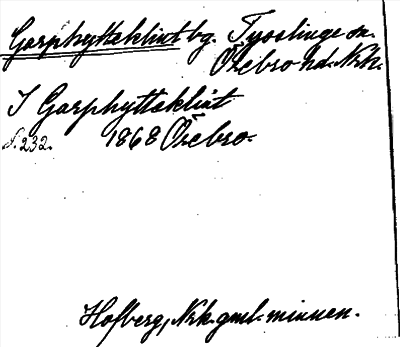 Garphytteklint bg. Tysslinge sn.
Örebro hd. Nrk.
I Garphytteklint
S. 232. 1868 Örebro.
Hofberg, Nrk. gml. minnen.